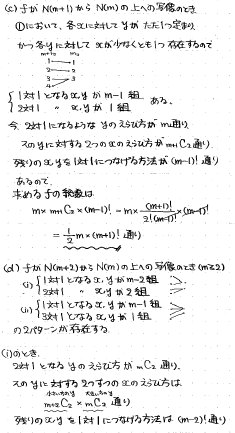 (c) fが N(m+1) から N(m) の上への写像のとき
①において、各xに対してyがただ1つ定まり、
かつ各yに対してxが少なくとも1つ存在するので
1 1
2 2
3 3
4
1対1となるx,yが m-1組
2対1 〃 x,yが 1組 ある。
今、2対1になるような yのえらび方が m通り
そのyに対する2つのxのえらび方が m+1C2 通り
残りのx,yを1対1につなげる方法が (m-1)! 通り
あるので、
求めるfの総数は
m × m+1C2 × (m-1)! = m × (m+1)! / 2!(m-1)! × (m-1)!
= 1/2 m × (m+1)! 通り
(d) fが N(m+2) から N(m) の上への写像のとき (m≧2)
(i) 1対1となるx,yが m-2組
2対1 〃 x,yが 2組
(ii) 1対1となるx,yが m-1組
3対1となるx,yが 1組
の2パターンが存在する
(i)のとき、
2対1となる yのえらび方が mC2 通り、
そのyに対する2つずつのxのえらび方は
m+2C2 × mC2 通り
残りのx,yを1対1につなげる方法は (m-2)! 通り